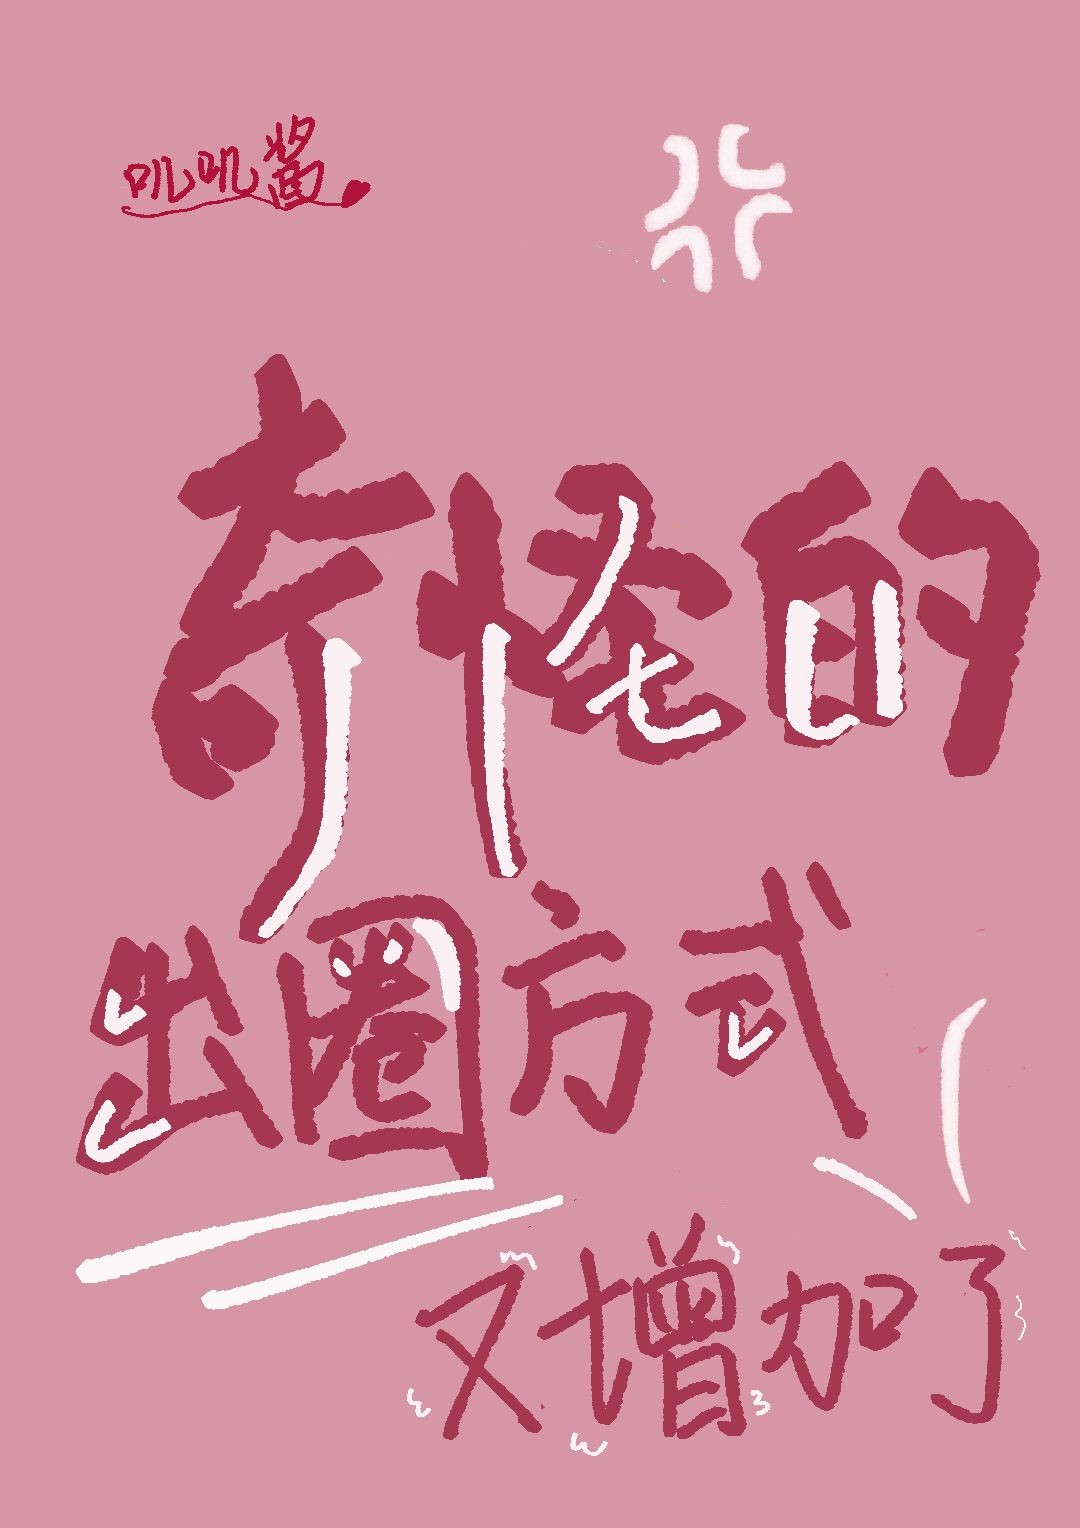 叽叽酱
奇怪的
出圈方式
又增加了